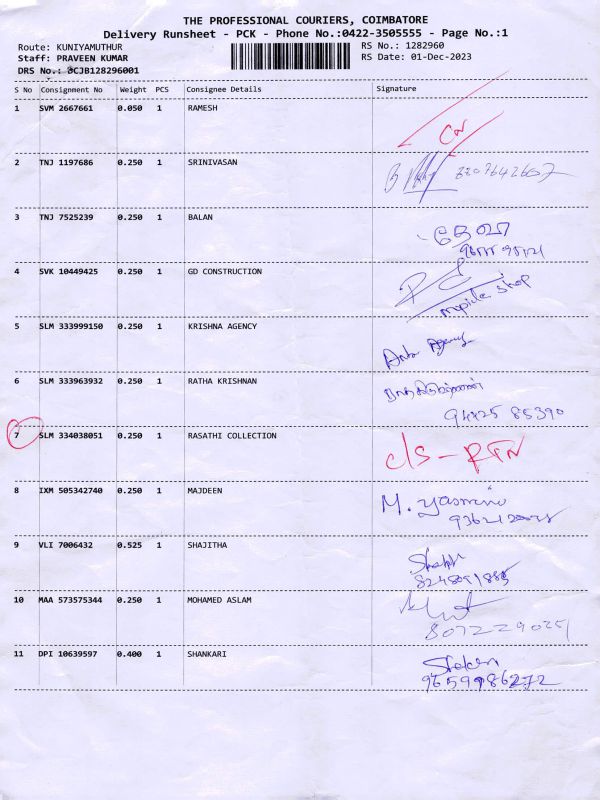 THE PROFESSIONAL COURIERS, COIMBATORE
Delivery Runsheet - PCK - Phone No.:0422-3505555 - Page No.:1
Route: KUNIYAMUTHUR RS No.: 1282960
Staff: PRAVEEN KUMAR RS Date: 01-Dec-2023
DRS No.: BCJB128296001
S No Consignment No Weight PCS Consignee Details Signature
1 SVM 2667661 0.050 1 RAMESH
CN
2 TNJ 1197686 0.250 1 SRINIVASAN
3 TNJ 7525239 0.250 1 BALAN
4 SVK 10449425 0.250 1 GD CONSTRUCTION
shop
5 SLM 333999150 0.250 1 KRISHNA AGENCY
Agency
6 SLM 333963932 0.250 1 RATHA KRISHNAN
94425 85390
7 SLM 334038051 0.250 1 RASATHI COLLECTION
c/s - RTN
8 IXM 505342740 0.250 1 MAJDEEN
M. Yasmin
9 VLI 7006432 0.525 1 SHAJITHA
10 MAA 573575344 0.250 1 MOHAMED ASLAM
8072229025
11 DPI 10639597 0.400 1 SHANKARI
9659986272